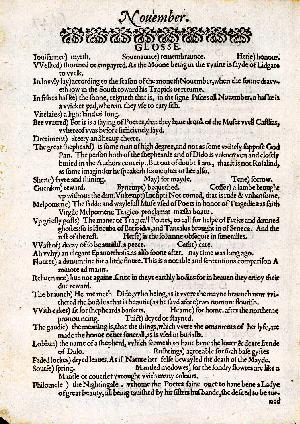 Nouember.
GLOSSE.
Iouisaunce) myrth. Souenaunce) remembraunce. Herie) honour.
Welked) shortned or empayred. As the Moone being in the waine is sayde of Lidgate
to welk.
In lowly lay) according to the season of the moneth Nouember, when the sonne draw-
eth low in the South toward his Tropick or returne.
In fishes haske) the sonne, reigneth that is, in the signe Pisces all Nouember. a haske is
a wicker pad, wherein they vse to cary fish.
Virelaies) a light kind of song.
Bee watred) For it is a saying of Poetes, that they haue dronk of the Muses well
whereof was before sufficiently sayd.
Dreriment) dreery and heauy cheere.
The great shepheard) is some man of high degree, and not as some vainely suppose God
Pan. The person both of the shephearde and of Dido is vnknowen and closely
buried in the Authors conceipt. But out of doubt I am, that it is not Rosalind,
as some imagin: for he speaketh soone after of her also.
Shene) fayre and shining. May) for mayde. Tene) sorrow.
Guerdon) reward. Bynempt) bequethed. Cosset) a lambe brought
vp without the dam. Vnkempt) Incompti Not comed, that is rude & vnhansome.
Melpomene) The sadde and waylefull Muse vsed of Poets in honor of Tragedies: as saith
Virgile Melpomene Tragico proclamat mæsta boatu.
Vp griesly gosts) The maner of Tragicall Poetes, to call for helpe of Furies and damned
ghostes: so is Hecuba of Euripides, and Tantalus brought in of Seneca. And the
rest of the rest. Herse) is the solemne obsequie in funeralles.
Wast of) decay of so beautifull a peece. Carke) care.
Ah why) an elegant Epanorthosis. as also soone after. nay time was long ago.
Flouret) a diminutiue for a little floure. This is a notable and sententious comparison A
minore ad maius.
Reliuen not) liue not againe .s. not in theyr earthly bodies: for in heauen they enioy their
due reward.
The braunch) He meaneth Dido, who being, as it were the mayne braunch now wi-
thered the buddes that is beautie (as he sayd afore) can nomore flourish.
With cakes) fit for shepheards bankets. Heame) for home. after the northerne
pronouncing. Tinct) deyed or stayned.
The gaudie) the meaning is, that the things, which were the ornaments of her lyfe, are
made the honor of her funerall, as is vsed in burialls.
Lobbin) the name of a shepherd, which seemeth to haue bene the louer & deere frende
of Dido. Rushrings) agreeable for such base gyftes
Faded lockes) dryed leaues. As if Nature her selfe bewayled the death of the Mayde.
Sourse) spring. Mantled medowes) for the sondry flowres are like a
Mantle or couerlet wrought with many colours.
Philomele) the Nightingale. whome the Poetes faine once to haue bene a Ladye
of great beauty, till being rauished by hir sisters husbande, she desired to be tur-
ned